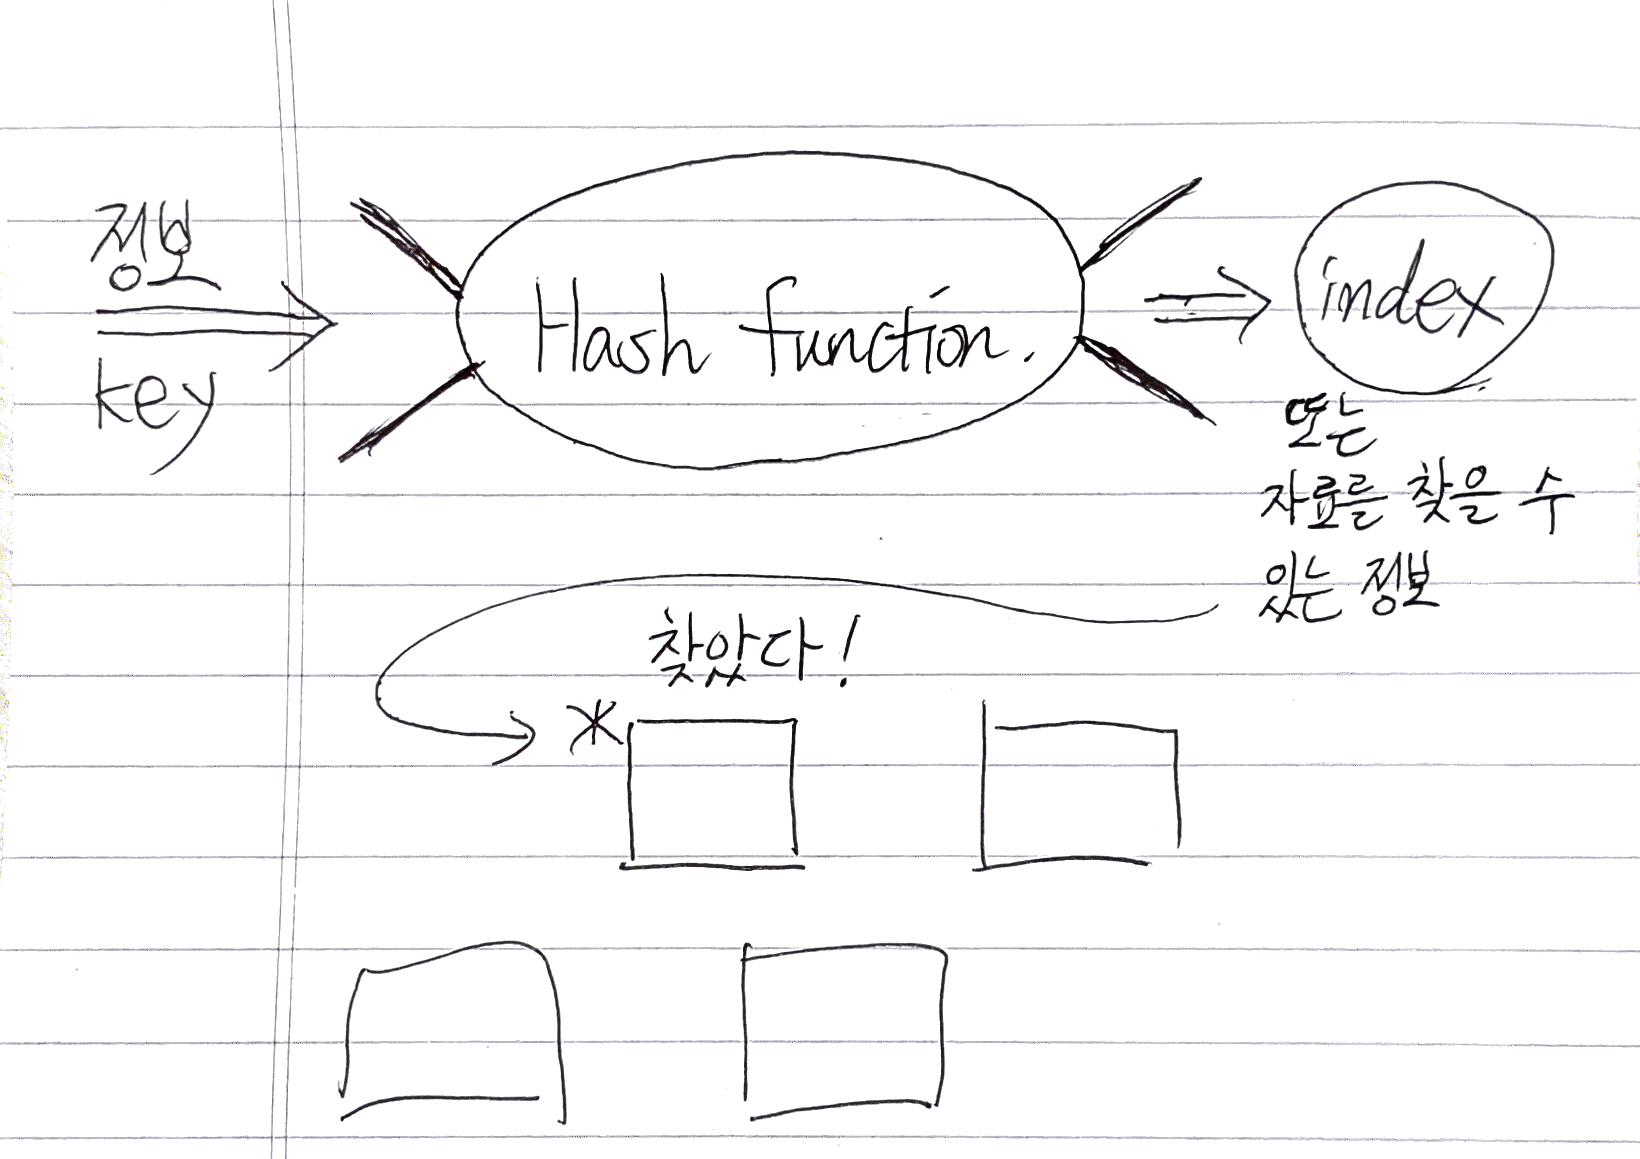 정보
key
Hash function.
index
또는
자료를 찾을 수
있는 정보
찾았다!
*